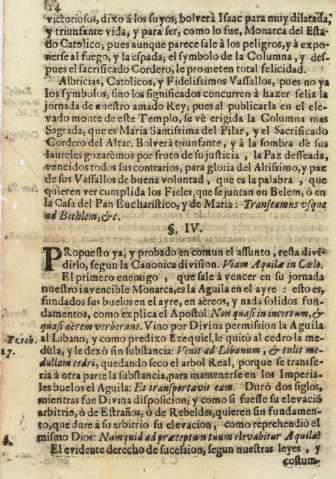 14
victoriosos, dixo à los suyos, bolverà Isaac para muy dilatada,
y triunfante vida, y para ser, como lo fue, Monarca del Esta-
do Catolico; pues aunque parece sale à los peligros, y à expo-
nerse al fuego, y la espada; el symbolo de la Columna, y des-
pues el sacrificado Cordero, le prometen total felicidad.
Albricias, Catolicos, y Fidelissimos Vassallos, pues no ya
los symbolos, sino los significados concurren à hazer feliz la
jornada de nuestro amado Rey; pues al publicarla en el ele-
vado monte de este Templo, se vè erigida la Columna mas
Sagrada, que es Maria Santissima del Pilar, y el Sacrificado
Cordero del Altar. Bolverà triunfante, y à la sombra de sus
laureles gozarèmos por fruto de su justicia, la Paz desseada,
vencidos todos sus contrarios, para gloria del Altissimo, y paz
de sus Vassallos de buena voluntad, que es la palabra, que
quieren ver cumplida los Fieles, que se juntan en Belem, ò en
la Casa del Pan Eucharistico, y de Maria: Transeamus usque
ad Bethlem, &c.
§. IV.
PRopuesto ya, y probado en comun el assunto, resta divi-
dirlo, segun la Canonica division. Viam Aquilæ in Cælo.
El primero enemigo, que sale à vencer en su jornada
nuestro invencible Monarca, es la Aguila en el ayre: esto es,
fundados sus buelos en el ayre, en aèreos, y nada solidos funda-
mentos, como explica el Apostol: Non quasi in incertum, &
quasi aerem verberans. Vino por Divina permission la Aguila
al Libano, y como predixo Ezequiel, le quitò al cedro la me-
Ezech.
17.
dula, y le dexò sin substancia: Venit ad Libanum, & tulit me-
dullam cedri, quedando seco el arbol Real, porque se transfe-
ria à otra parte la substancia, para mantenerse en los Imperia-
les buelos el Aguila: Et transportavit eam. Durò dos siglos,
mientras fue Divina disposicion; y como si fuesse su elevació
arbitrio, ò de Estraños, ò de Rebeldes, quieren sin fundamen-
to, que dure à su arbitrio su elevacion, como reprehendiò el
mismo Dios: Nunquid ad præceptum tuum elevabitur Aquila?
El evidente derecho de sucession, segun nuestras leyes, y
costum-